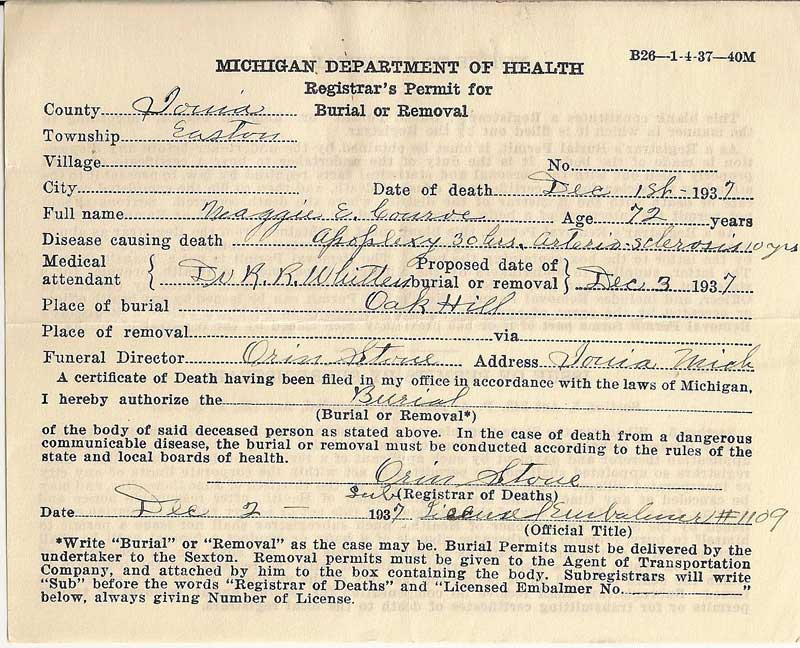 B26—1-4-37—40M
MICHIGAN DEPARTMENT OF HEALTH
Registrar's Permit for
Burial or Removal
County Ionia
Township Easton
Village No.
City Date of death Dec 1st - 1937
Full name Maggie E. Age 72 years
Disease causing death Apoplexy 30 hrs. Arterio-sclerosis 10 yrs
Medical attendant Dr R. R. Whitten Proposed date of burial or removal Dec 3 1937
Place of burial Oak Hill
Place of removal via
Funeral Director Orin Stone Address Ionia Mich
A certificate of Death having been filed in my office in accordance with the laws of Michigan,
I hereby authorize the Burial
(Burial or Removal*)
of the body of said deceased person as stated above. In the case of death from a dangerous
communicable disease, the burial or removal must be conducted according to the rules of the
state and local boards of health.
Orin Stone
Sub (Registrar of Deaths)
Date Dec 2 - 1937 License Embalmer #1109
(Official Title)
*Write "Burial" or "Removal" as the case may be. Burial Permits must be delivered by the
undertaker to the Sexton. Removal permits must be given to the Agent of Transportation
Company, and attached by him to the box containing the body. Subregistrars will write
"Sub" before the words "Registrar of Deaths" and "Licensed Embalmer No. "
below, always giving Number of License.